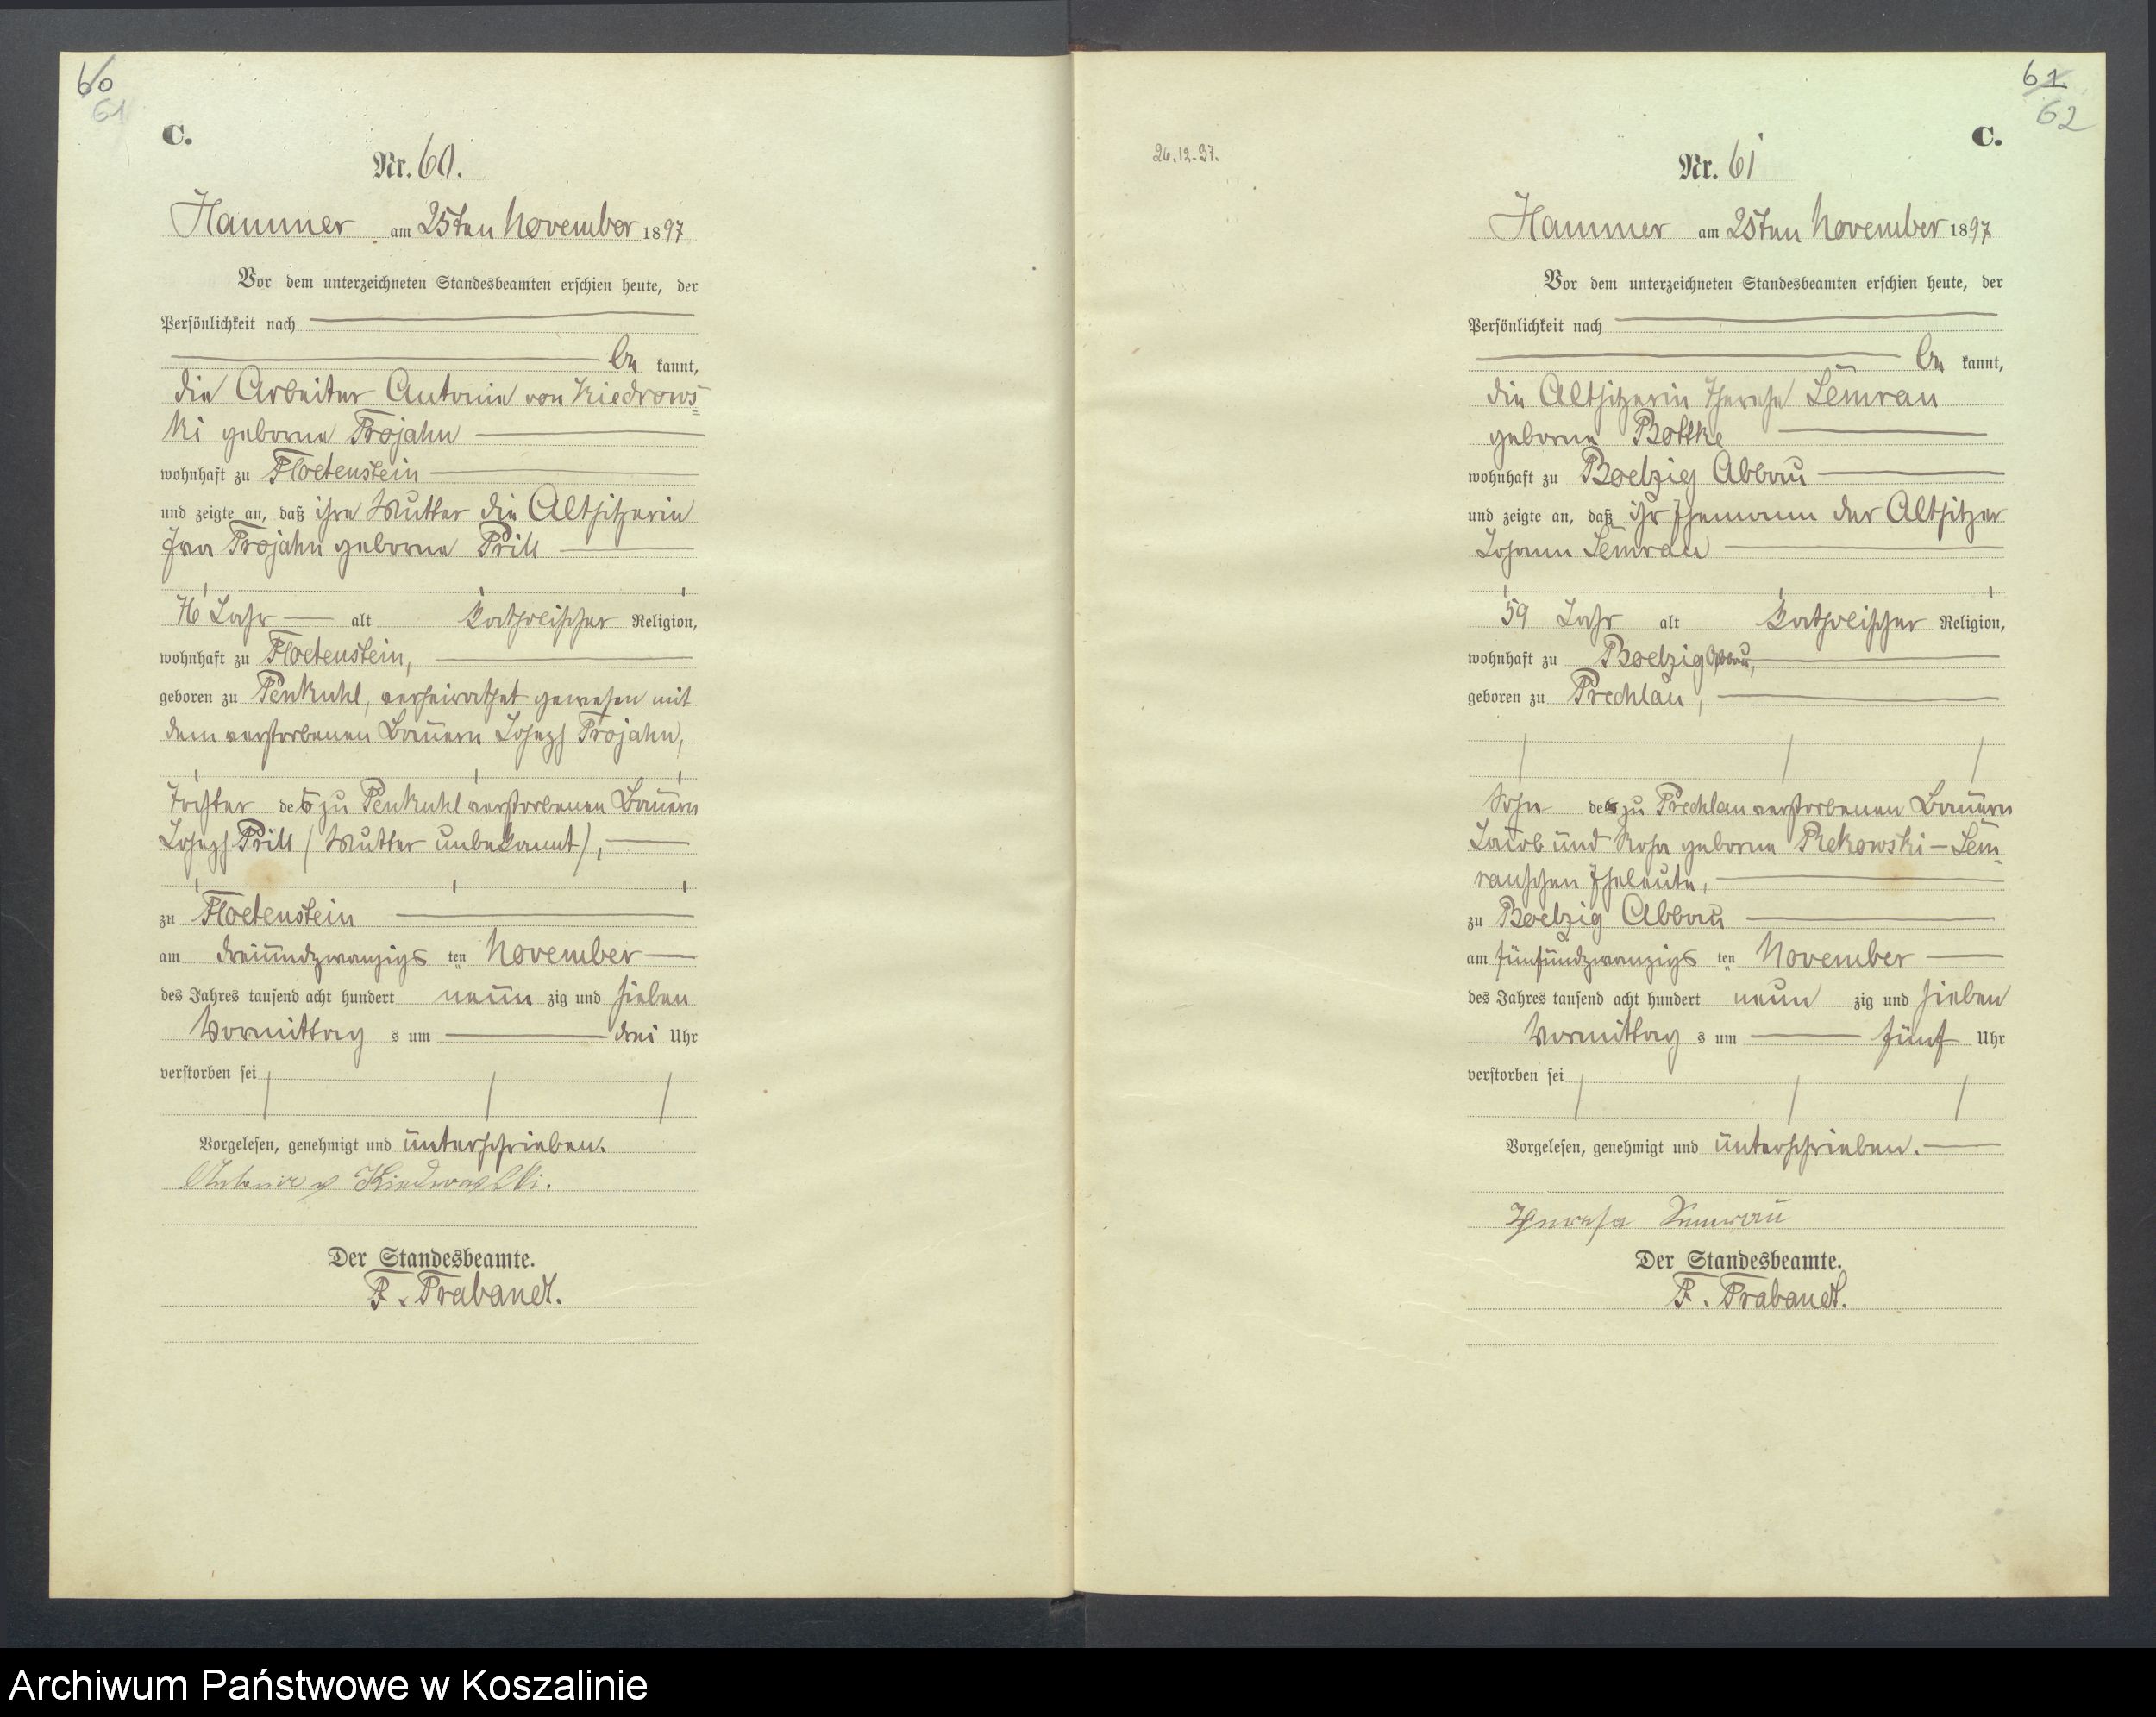 60
61
C.
Nr. 60.
Hammer am 25ten November 1897
Vor dem unterzeichneten Standesbeamten erschien heute, der
Persönlichkeit nach
be kannt,
die Arbeiter Antonie von Kiedrows=
ki geborne Trojahn
wohnhaft zu Floetenstein
und zeigte an, daß ihre Mutter die Altsitzerin
Eva Trojahn geborne Prill
76 Jahr alt katholischer Religion,
wohnhaft zu Floetenstein,
geboren zu Penkuhl, verheirathet gewesen mit
dem verstorbenen Bauern Joseph Trojahn,
Tochter des zu Penkuhl verstorbenen Bauern
Joseph Prill (Mutter unbekannt),
zu Floetenstein
am dreiundzwanzigs ten November
des Jahres tausend acht hundert neun zig und sieben
Vormittag s um drei Uhr
verstorben sei
Vorgelesen, genehmigt und unterschrieben.
Antonie v Kiedrowski.
Der Standesbeamte.
F. Trabandt.
26.12.37.
61
62
C.
Nr. 61
Hammer am 25ten November 1897
Vor dem unterzeichneten Standesbeamten erschien heute, der
Persönlichkeit nach
be kannt,
die Altsitzerin Therese Semrau
geborne Bottke
wohnhaft zu Boelzig Abbau
und zeigte an, daß ihr Ehemann der Altsitzer
Johann Semrau
59 Jahr alt katholischer Religion,
wohnhaft zu Boelzig Abbau,
geboren zu Prechlau,
Sohn des zu Prechlau verstorbenen Bauern
Jacob und Rosa geborne Rekowski - Sem=
rauschen Eheleute,
zu Boelzig Abbau
am fünfundzwanzigs ten November
des Jahres tausend acht hundert neun zig und sieben
Vormittag s um fünf Uhr
verstorben sei
Vorgelesen, genehmigt und unterschrieben.
Theresa Semrau
Der Standesbeamte.
F. Trabandt.
Archiwum Państwowe w Koszalinie